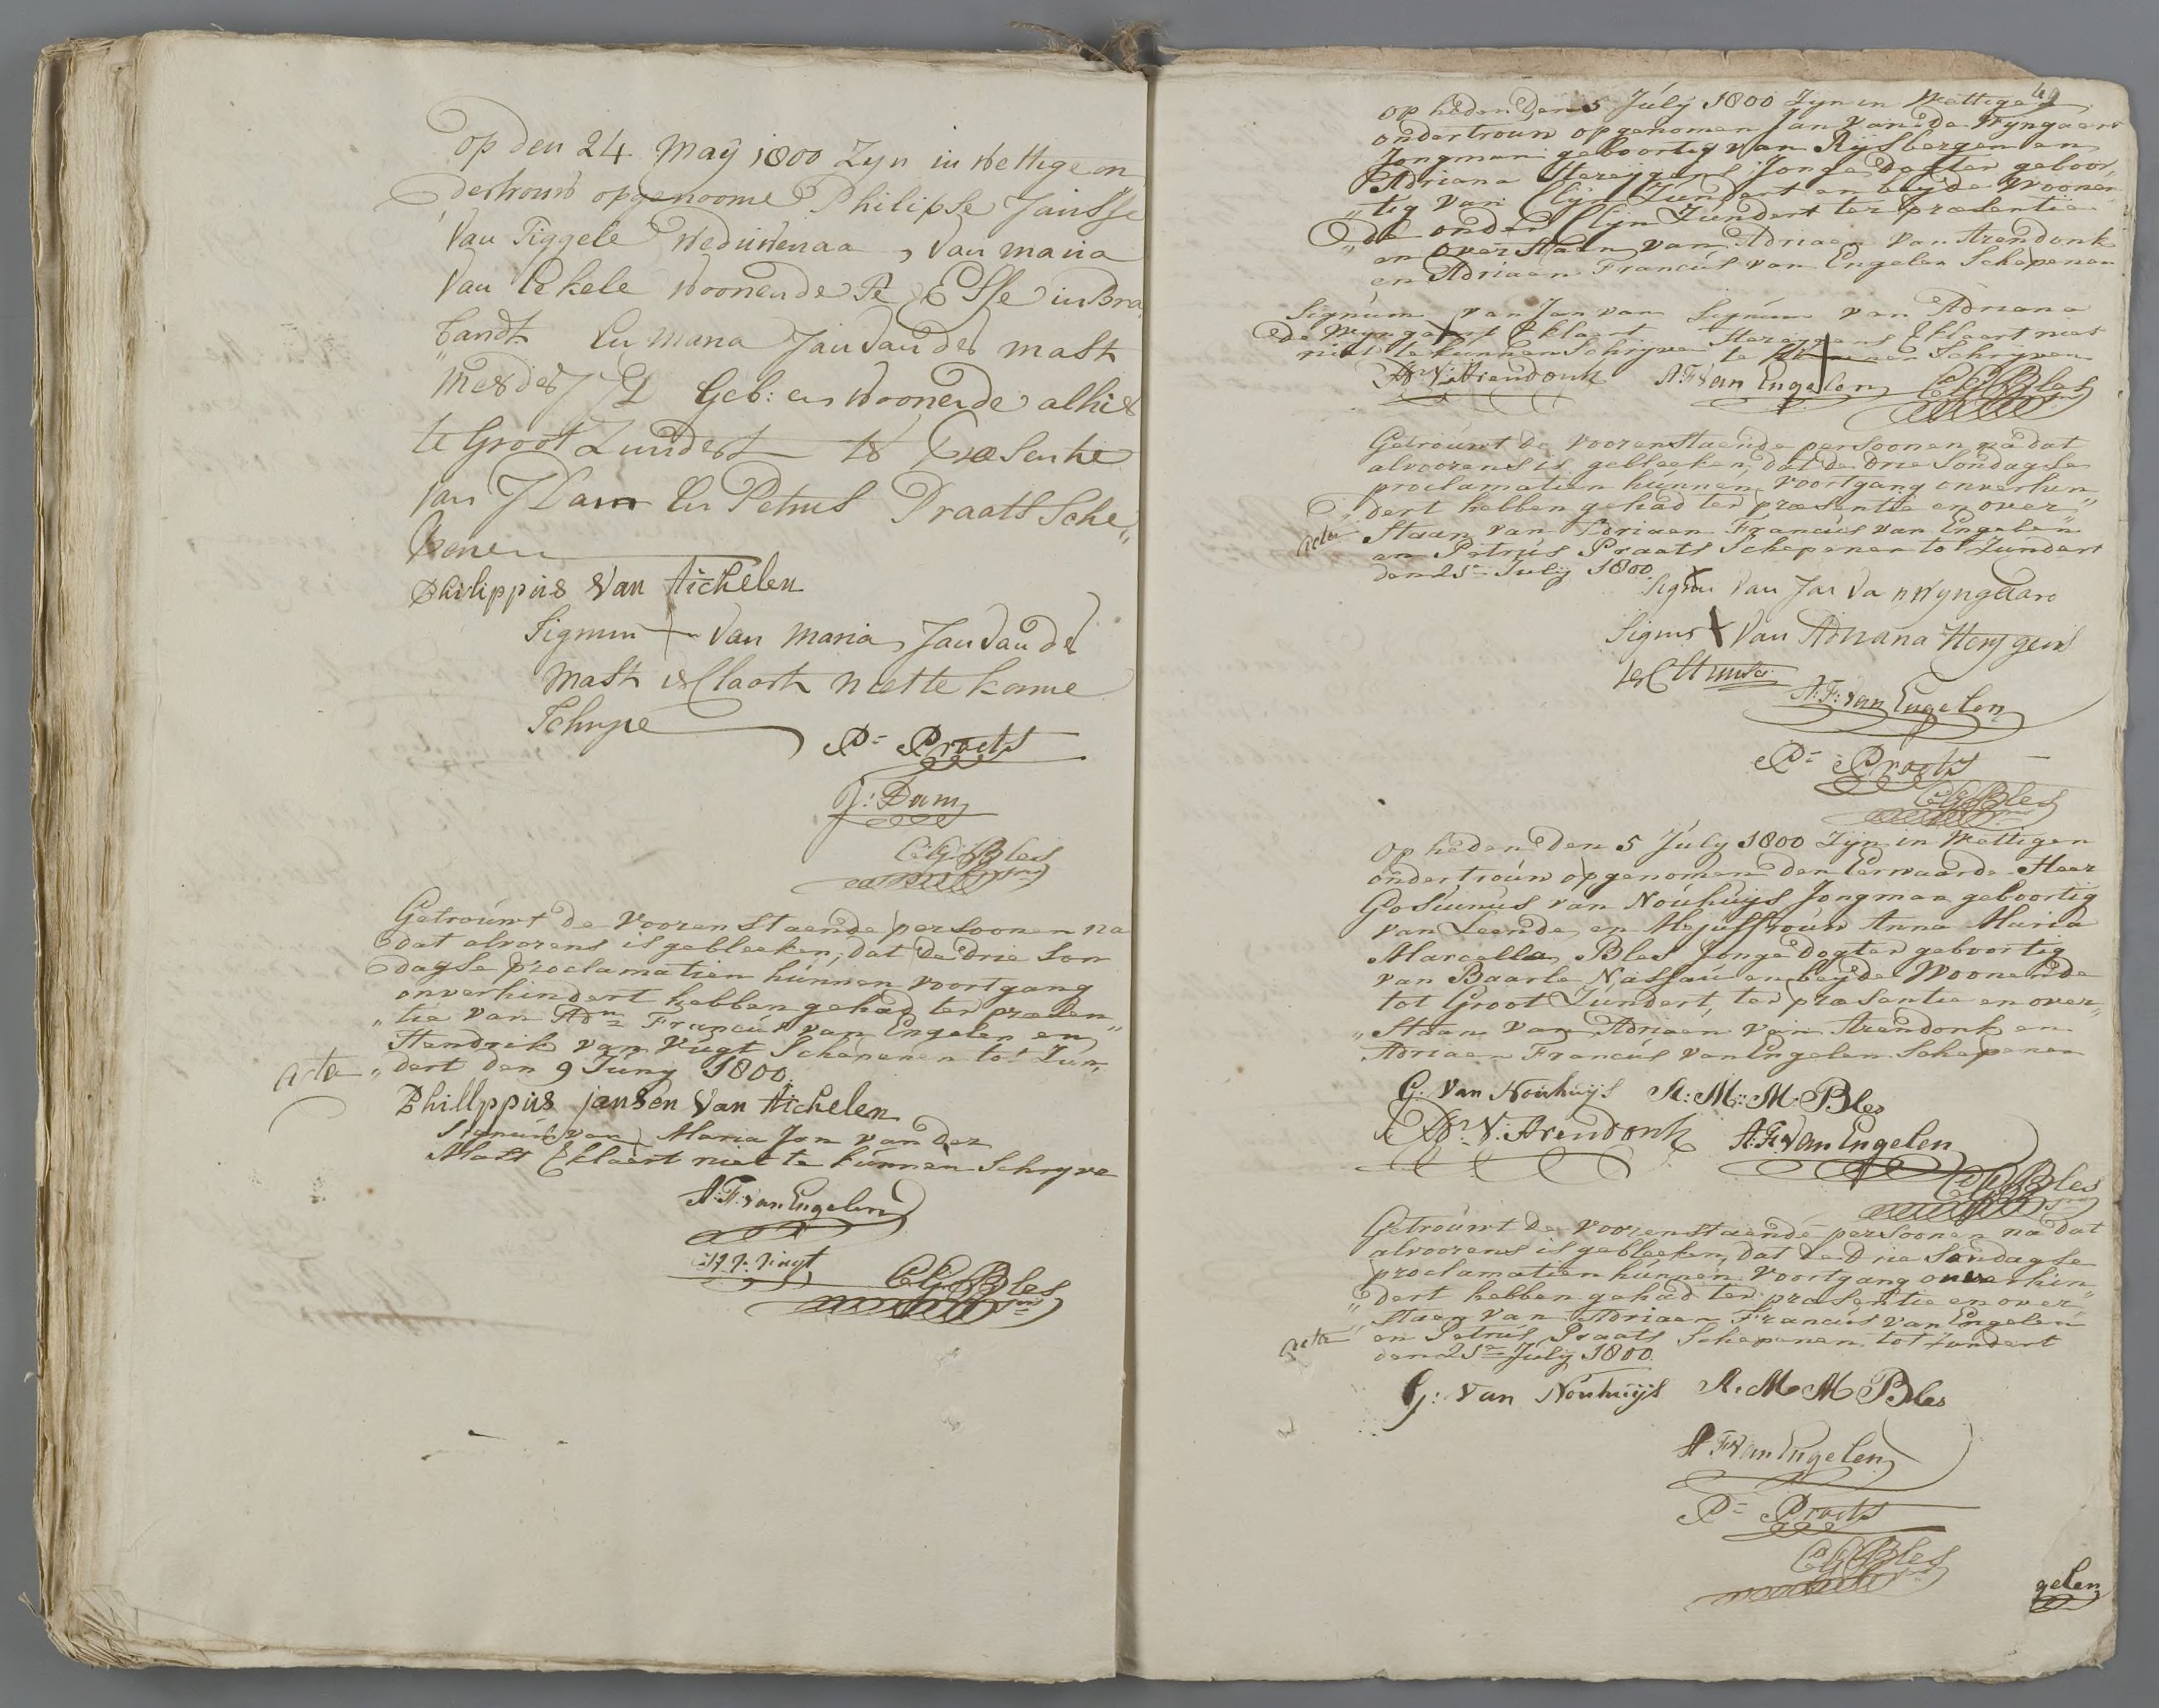 op den 24 maÿ 1800 Zyn in wettige on
dertrouw opgenoome Philipse Jansse
Van Tiggele Weduwenaa, van maria
Van Eekele woonende te Esse in Bra
bandt En maria Jan van der mast
Meerder J D Geb: en woonende alhier
te Groot Zundert ter Præsentie
van J Dam En Petrus Praats Sche„
penen
Philippus Van tichelen
Signum van maria Jan van der
mast verclaart niet te konne
Schrype
P= Praats
J: Dam
C:G:Bles
Getrouwt de voorenstaende persoonen na
dat alvorens is gebleeken, dat de drie Son
dagse proclamatien hunnen voortgang
onverhindert hebben gehad ter præsen„
„tie van Adn= Francus van Engelen en
Hendrik van Vugt Schepenen tot Zun„
acta „dert den 9 Juny 1800.
Phillppus jansen Van tichelen
Signum van Maria Jan van der
Mast Eklaert niet te kunnen Schryve
A:F:van Engelen
H V: Vugt
C:G:Bles
49
op heden den 5 July 1800 Zyn in Wettigen
ondertrouw opgenomen Jan van de Wyngaert
Jongman geboortig van Rijsbergen en
Adriana Hereygens Jonge dogter geboor„
„tig van Clijn Zundert en beyde Woonen
„de onder Clijn Zundert ter præsentie
en overstaen van Adriaen van Arendonk
en Adriaen Francus van Engelen Schepenen
Signum van Jan van
de Wyngaert Eklaert
niet te kunnen Schryven
Signum van Adriana
Hereygens Eklaert niet
te kunnen Schryven
Adr. V: Arendonk A:F:van Engelen C:G:Bles
Getrouwt de voorenstaende persoonen na dat
alvoorens is gebleeken, dat de drie Sondagse
proclamatien hunnen voortgang onverhin„
dert hebben gehad ter præsentie en over„
acta Staan van Adriaen Francus van Engelen
en Petrus Praats Schepenen tot Zundert
den 21e July 1800
Signu Van Jan Van Wyngaard
Signu Van Adriana Hereygens
A:F:van Engelen
P= Praats
C:G:Bles
op heden den 5 July 1800 Zijn in Wettigen
ondertrouw opgenomen den Eerwaarde Heer
Gosuinus van Nouhuijs Jongman geboortig
van Leende, en Mejuffrouw Anna Maria
Marcella Bles Jonge dogter geboortig
van Baarle Nassau en beyde Woonende
tot Groot Zundert, ter præsentie en over„
„Staan van Adriaen van Arendonk en
Adriaen Francus van Engelen Schepenen
G: Van Nouhuijs A:M:M:Bles
Adr. V: Arendonk A:F:van Engelen
C:G:Bles
Getrouwt de voorenstaende persoonen na dat
alvoorens is gebleeken, dat de drie Sondagse
proclamatien hunnen voortgang onverhin„
„dert hebben gehad ter præsentie en over„
„Staen van Adriaen Francus van Engelen
acta en Petrus Praats Schepenen tot Zundert
den 21e July 1800
G: Van Nouhuijs A. M M Bles
A F van Engelen
P= Praats
C:G:Bles
gelen